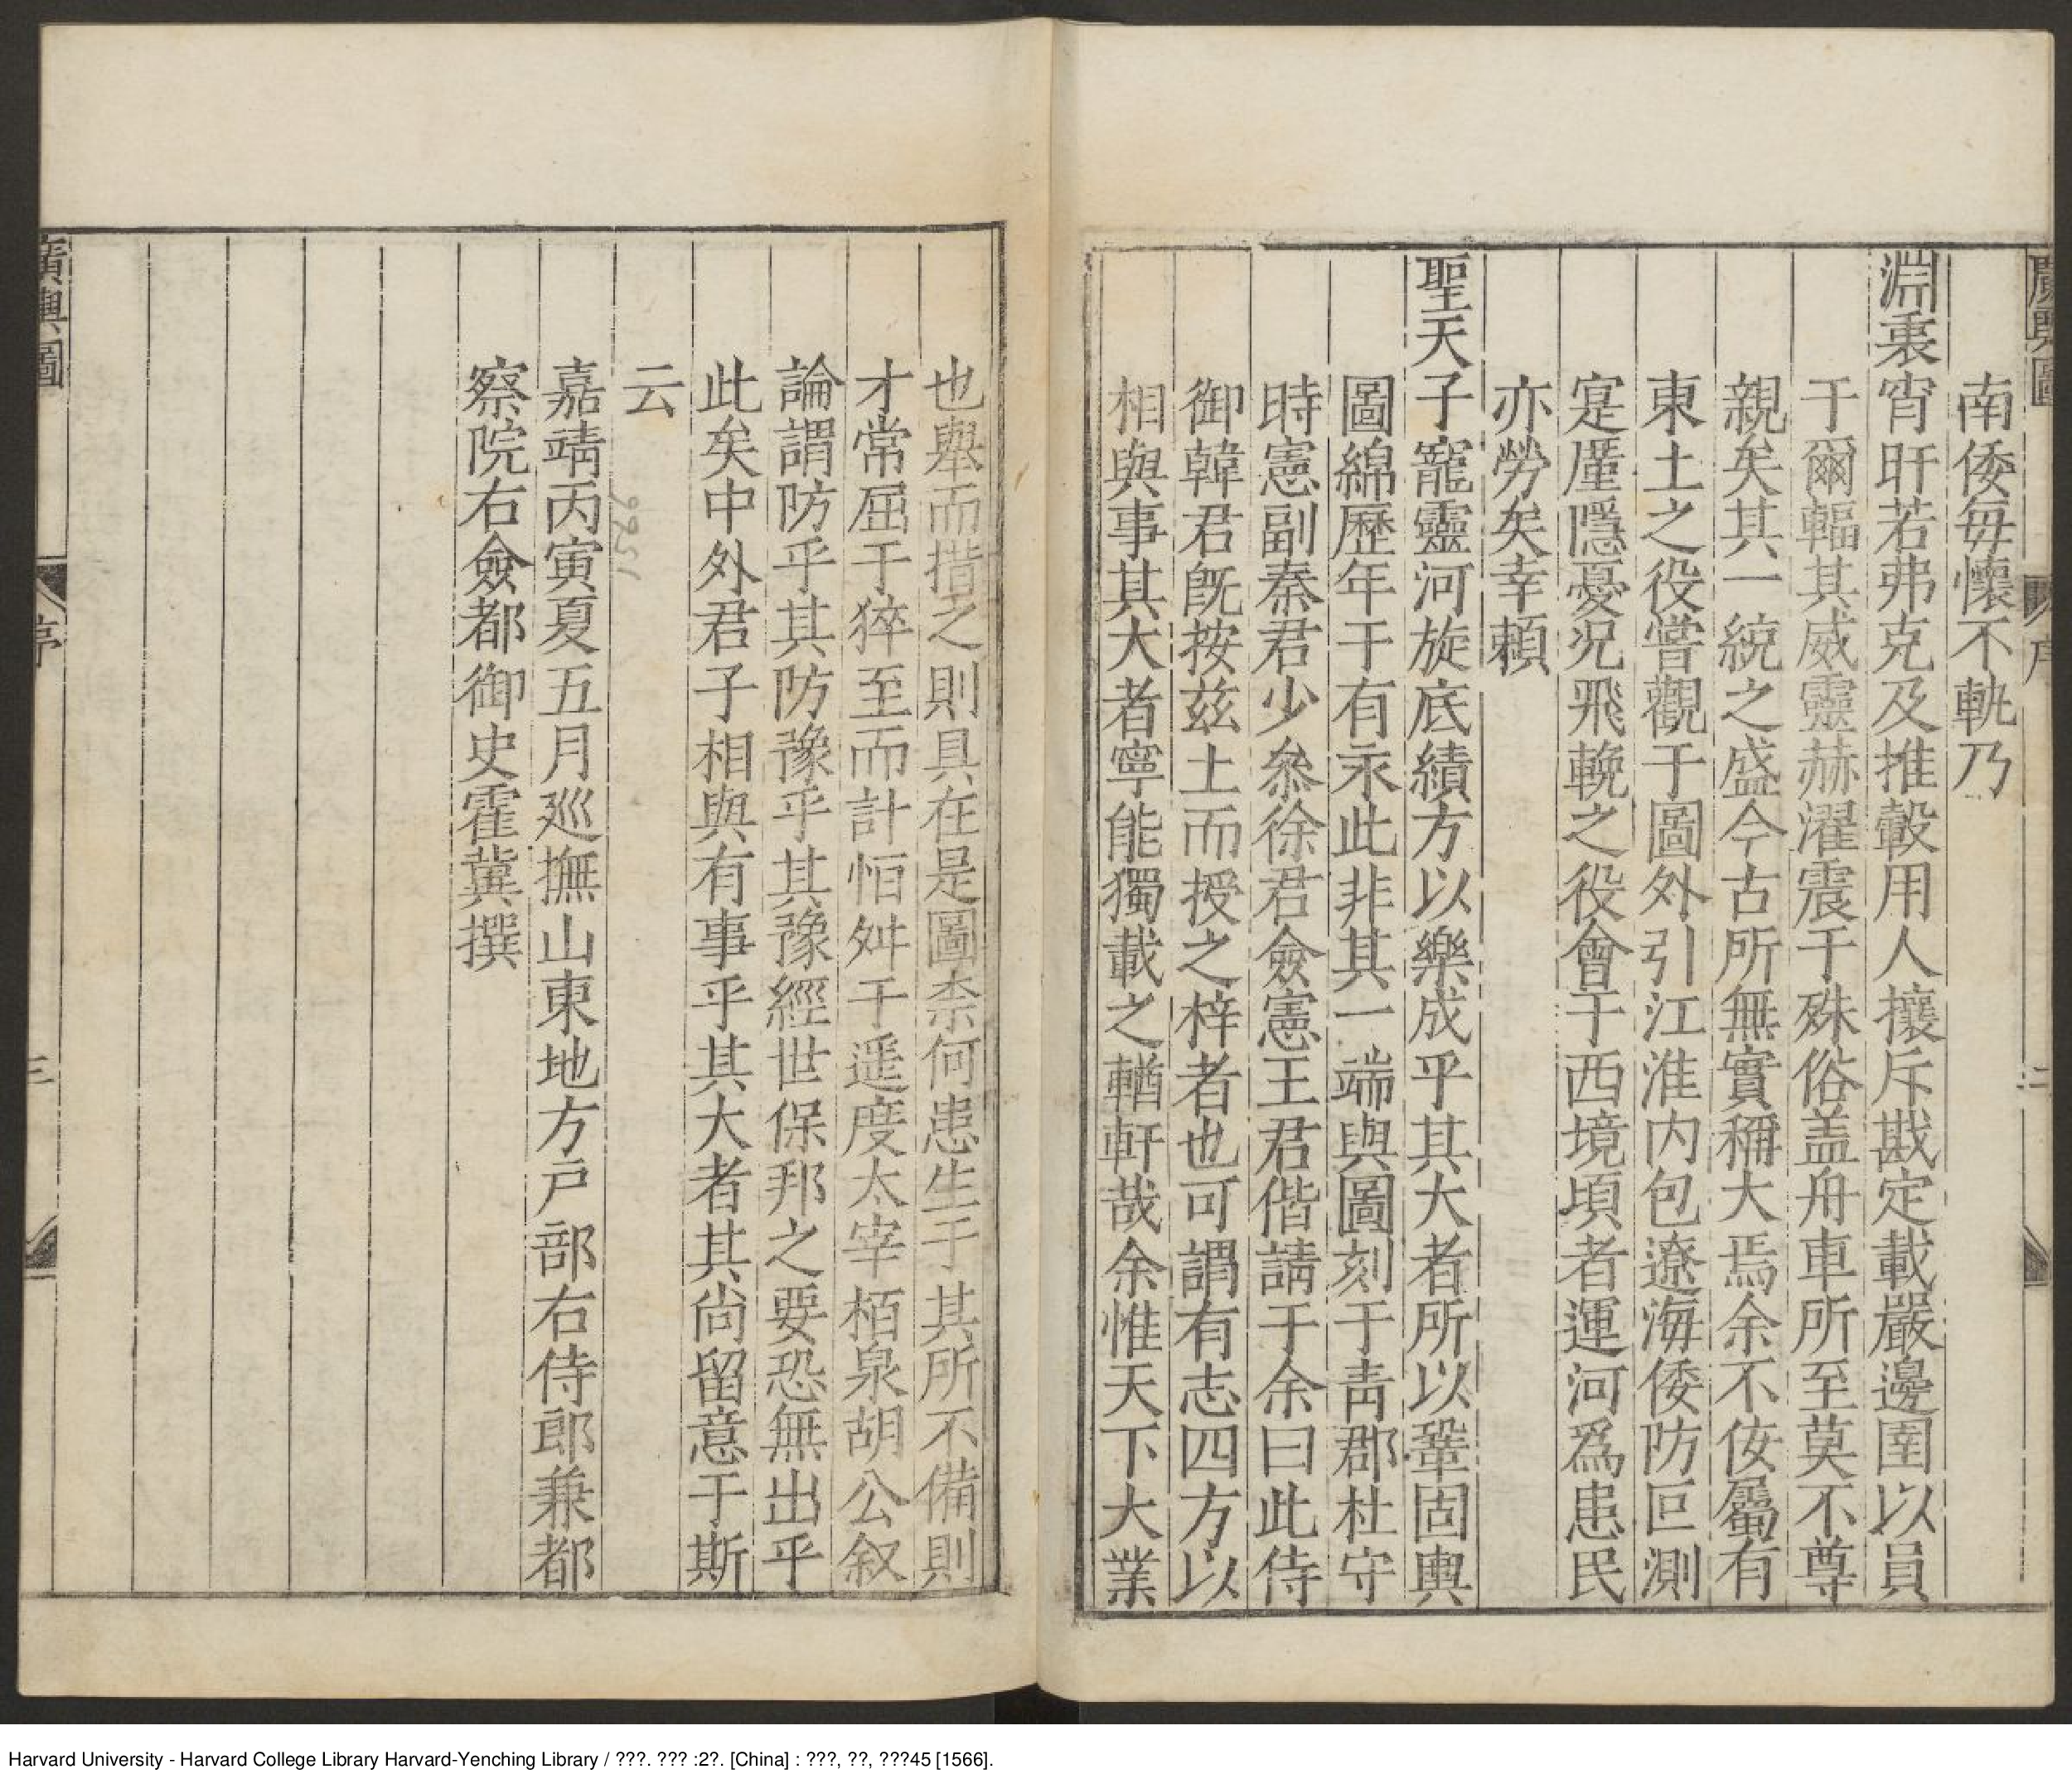 廣輿圖
序
二
南倭每懷不軌乃
淵衷宵旰若弗克及推轂用人攘斥戡定載嚴邊圉以員
于爾輻其威靈赫濯震于殊俗盖舟車所至莫不尊
親矣其一統之盛今古所無實稱大焉余不佞屬有
東土之役嘗觀于圖外引江淮内包遼海倭防叵測
寔厪隱憂况飛輓之役會于西境頃者運河爲患民
亦勞矣幸頼
聖天子寵靈河旋底績方以樂成乎其大者所以鞏固輿
圖綿歷年于有永此非其一端與圖刻于青郡杜守
時憲副秦君少叅徐君僉憲王君偕請于余曰此侍
御韓君旣按兹土而授之梓者也可謂有志四方以
相與事其大者寧能獨載之輶軒哉余惟天下大業
也舉而措之則具在是圖柰何患生于其所不備則
才常屈于猝至而計恒舛于遥度太宰栢泉胡公叙
論謂防乎其防豫乎其豫經世保邦之要恐無出乎
此矣中外君子相與有事乎其大者其尚留意于斯
云
1566
嘉靖丙寅夏五月廵撫山東地方戸部右侍郎兼都
察院右僉都御史霍冀撰
廣輿圖
序
三
Harvard University - Harvard College Library Harvard-Yenching Library / ???. ??? :2?. [China] : ???, ??, ???45 [1566].